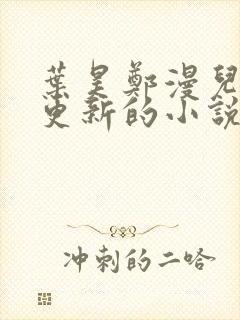 葉昊鄭漫兒
更新的小說
冲刺的二哈